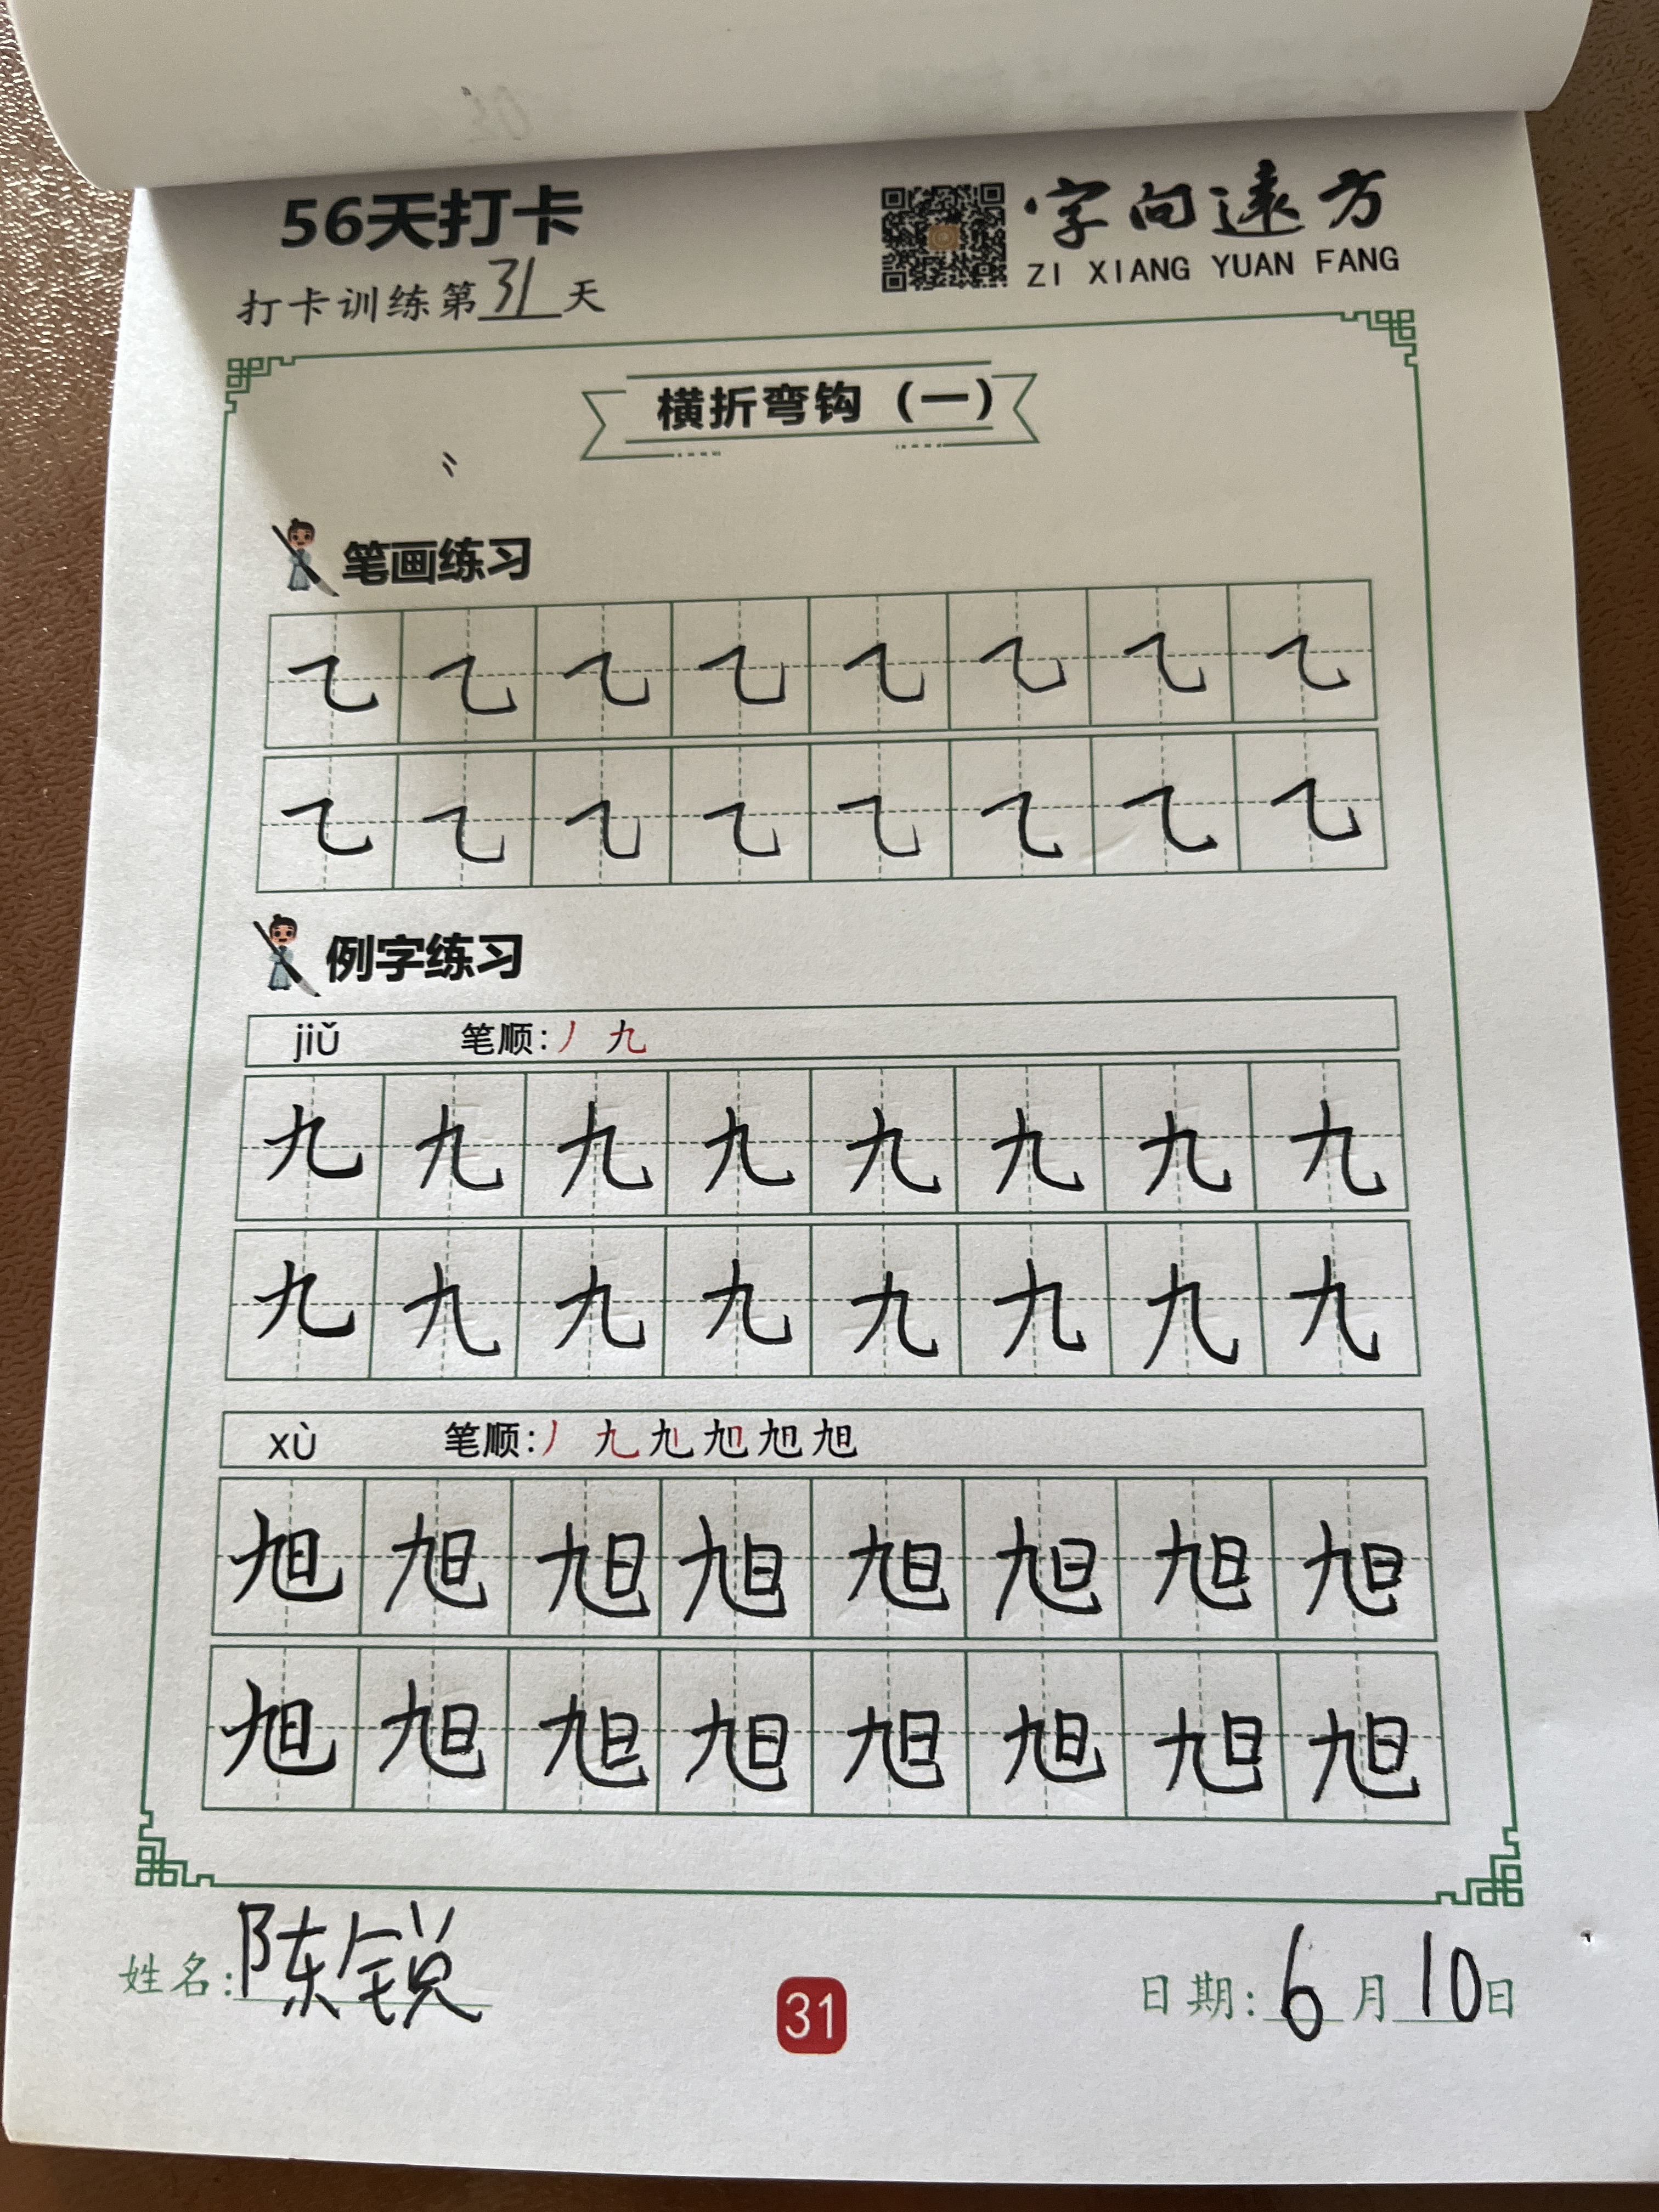 56天打卡
字向远方
ZI XIANG YUAN FANG
打卡训练第31天
横折弯钩（一）
笔画练习
㇈ ㇈ ㇈ ㇈ ㇈ ㇈ ㇈ ㇈
㇈ ㇈ ㇈ ㇈ ㇈ ㇈ ㇈ ㇈
例字练习
jiǔ 笔顺：丿 九
九 九 九 九 九 九 九 九
九 九 九 九 九 九 九 九
xù 笔顺：丿 九 旭 旭 旭 旭
旭 旭 旭 旭 旭 旭 旭 旭
旭 旭 旭 旭 旭 旭 旭 旭
姓名：陈锐
31
日期：6月10日